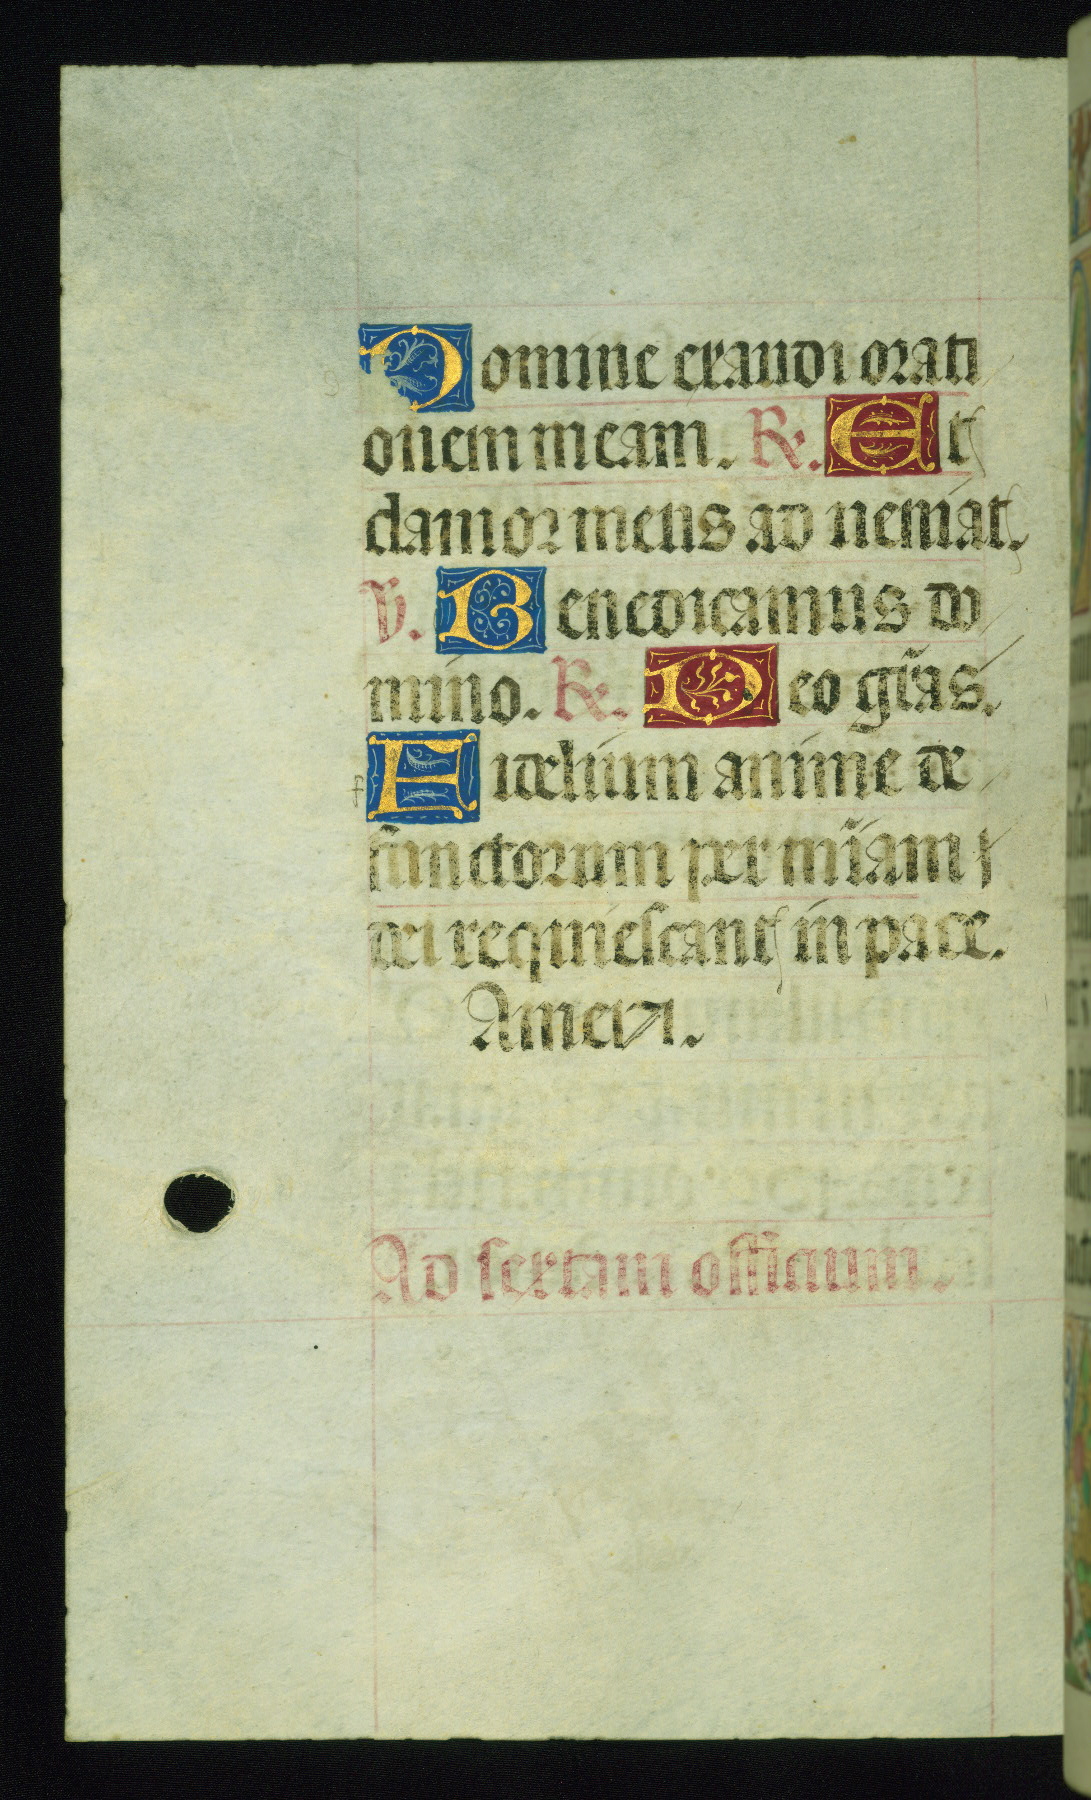 Domine exaudi orati
onem meam. R. Et
clamor meus ad te veniat.
V. Benedicamus do
mino. R. Deo grās.
Fidelium anime de
functorum per mīam
dei requiescant in pace.
Amen.
Ad sextam officium.